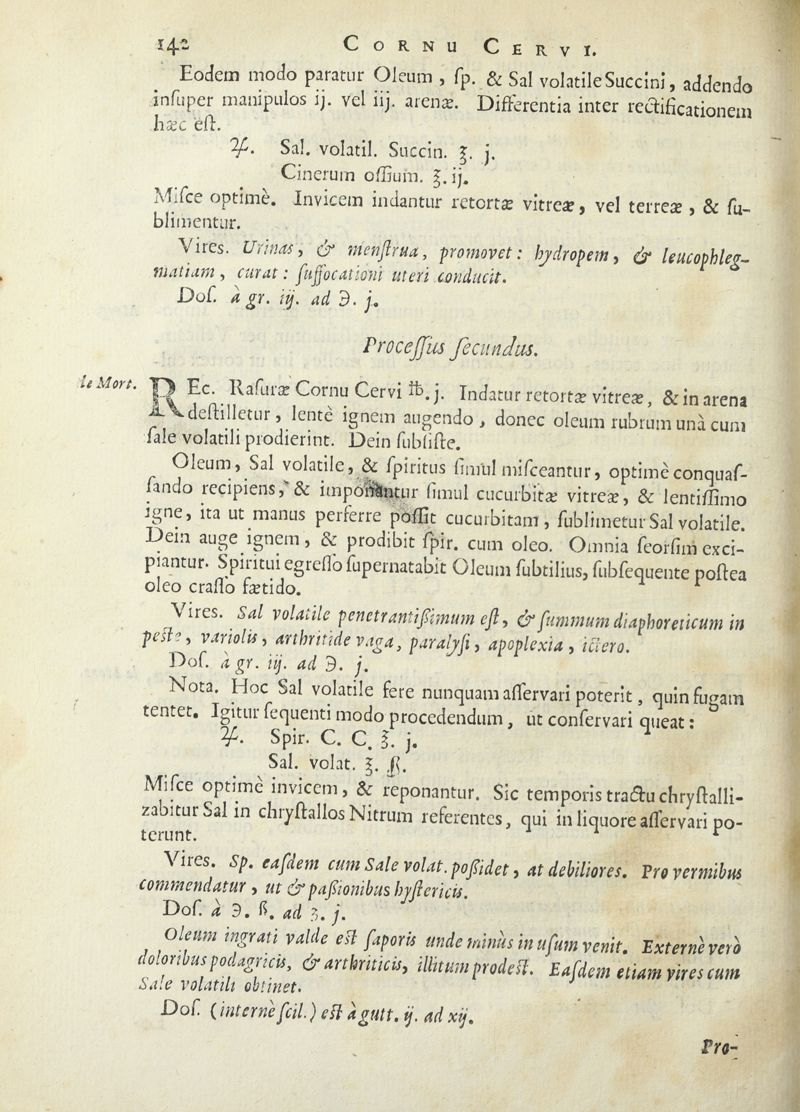 142 CORNU CERVI.
Eodem modo paratur Oleum, ſp. & Sal volatile Succini, addendo
inſuper manipulos ij. vel iij. arenæ. Differentia inter rectificationem
hæc eſt.
♃. Sal. volatil. Succin. ℥. j.
Cinerum oſſium. ℥. ij.
Miſce optimè. Invicem indantur retortæ vitreæ, vel terreæ, & ſu-
blimentur.
Vires. Urinas, & menſtrua, promovet: hydropem, & leucophleg-
matiam, curat: ſuffocationi uteri conducit.
Doſ. à gr. iij. ad ℈. j.
Proceſſus ſecundus.
le Mort. REc. Raſuræ Cornu Cervi ℔. j. Indatur retortæ vitreæ, & in arena
deſtilletur, lentè ignem augendo, donec oleum rubrum unà cum
ſale volatili prodierint. Dein ſubſiſte.
Oleum, Sal volatile, & ſpiritus ſimul miſceantur, optimè conquaſ-
ſando recipiens, & imponantur ſimul cucurbitæ vitreæ, & lentiſſimo
igne, ita ut manus perferre poſſit cucurbitam, ſublimetur Sal volatile.
Dein auge ignem, & prodibit ſpir. cum oleo. Omnia ſeorſim exci-
piantur. Spiritui egreſſo ſupernatabit Oleum ſubtilius, ſubſequente poſtea
oleo craſſo fætido.
Vires. Sal volatile penetrantiſſimum eſt, & ſummum diaphoreticum in
peſte, variolis, arthritide vaga, paralyſi, apoplexia, ictero.
Doſ. à gr. iij. ad ℈. j.
Nota. Hoc Sal volatile fere nunquam aſſervari poterit, quin fugam
tentet. Igitur ſequenti modo procedendum, ut conſervari queat:
♃. Spir. C. C. ℥. j.
Sal. volat. ℥. ß.
Miſce optimè invicem, & reponantur. Sic temporis tractu chryſtalli-
zabitur Sal in chryſtallos Nitrum referentes, qui in liquore aſſervari po-
terunt.
Vires. Sp. eaſdem cum Sale volat. poſſidet, at debiliores. Pro vermibus
commendatur, ut & paſſionibus hyſtericis.
Doſ. à ℈. ß. ad ʒ. j.
Oleum ingrati valde eſt ſaporis unde minùs in uſum venit. Externè verò
doloribus podagricis, & arthriticis, illitum prodeſt. Eaſdem etiam vires cum
Sale volatili obtinet.
Doſ. (internè ſcil.) eſt à gutt. ij. ad xij.
Pro-